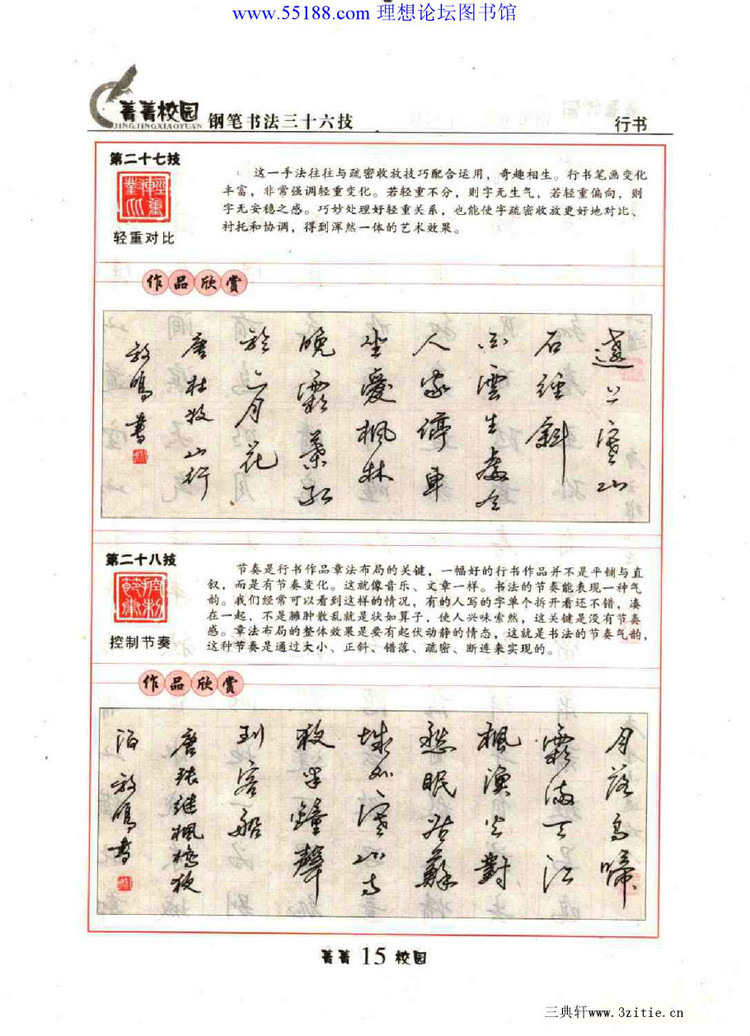 www.55188.com 理想论坛图书馆
菁菁校园
JINGJINGXIAOYUAN
钢笔书法三十六技
行书
第二十七技
轻重对比
这一手法往往与疏密收放技巧配合运用，奇趣相生。行书笔画变化
丰富，非常强调轻重变化。若轻重不分，则字无生气，若轻重偏向，则
字无安稳之感。巧妙处理好轻重关系，也能使字疏密收放更好地对比、
衬托和协调，得到浑然一体的艺术效果。
作品欣赏
遠上寒山
石徑斜
白雲生處
人家停車
坐愛楓林
晚霜葉紅
於二月花
唐杜牧山行
書
第二十八技
控制节奏
节奏是行书作品章法布局的关键，一幅好的行书作品并不是平铺与直
叙，而是有节奏变化。这就像音乐、文章一样。书法的节奏能表现一种气
韵。我们经常可以看到这样的情况，有的人写的字单个拆开看还不错，凑
在一起，不是臃肿散乱就是状如算子，使人兴味索然，这关键是没有节奏
感。章法布局的整体效果是要有起伏动静的情态，这就是书法的节奏气韵，
这种节奏是通过大小、正斜、错落、疏密、断连来实现的。
作品欣赏
月落烏啼
霜滿天江
楓漁火對
愁眠姑蘇
城外寒山寺
夜半鐘聲
到客船
唐張继楓橋夜
泊 書
菁菁 15 校园
三典轩www.3zitie.cn